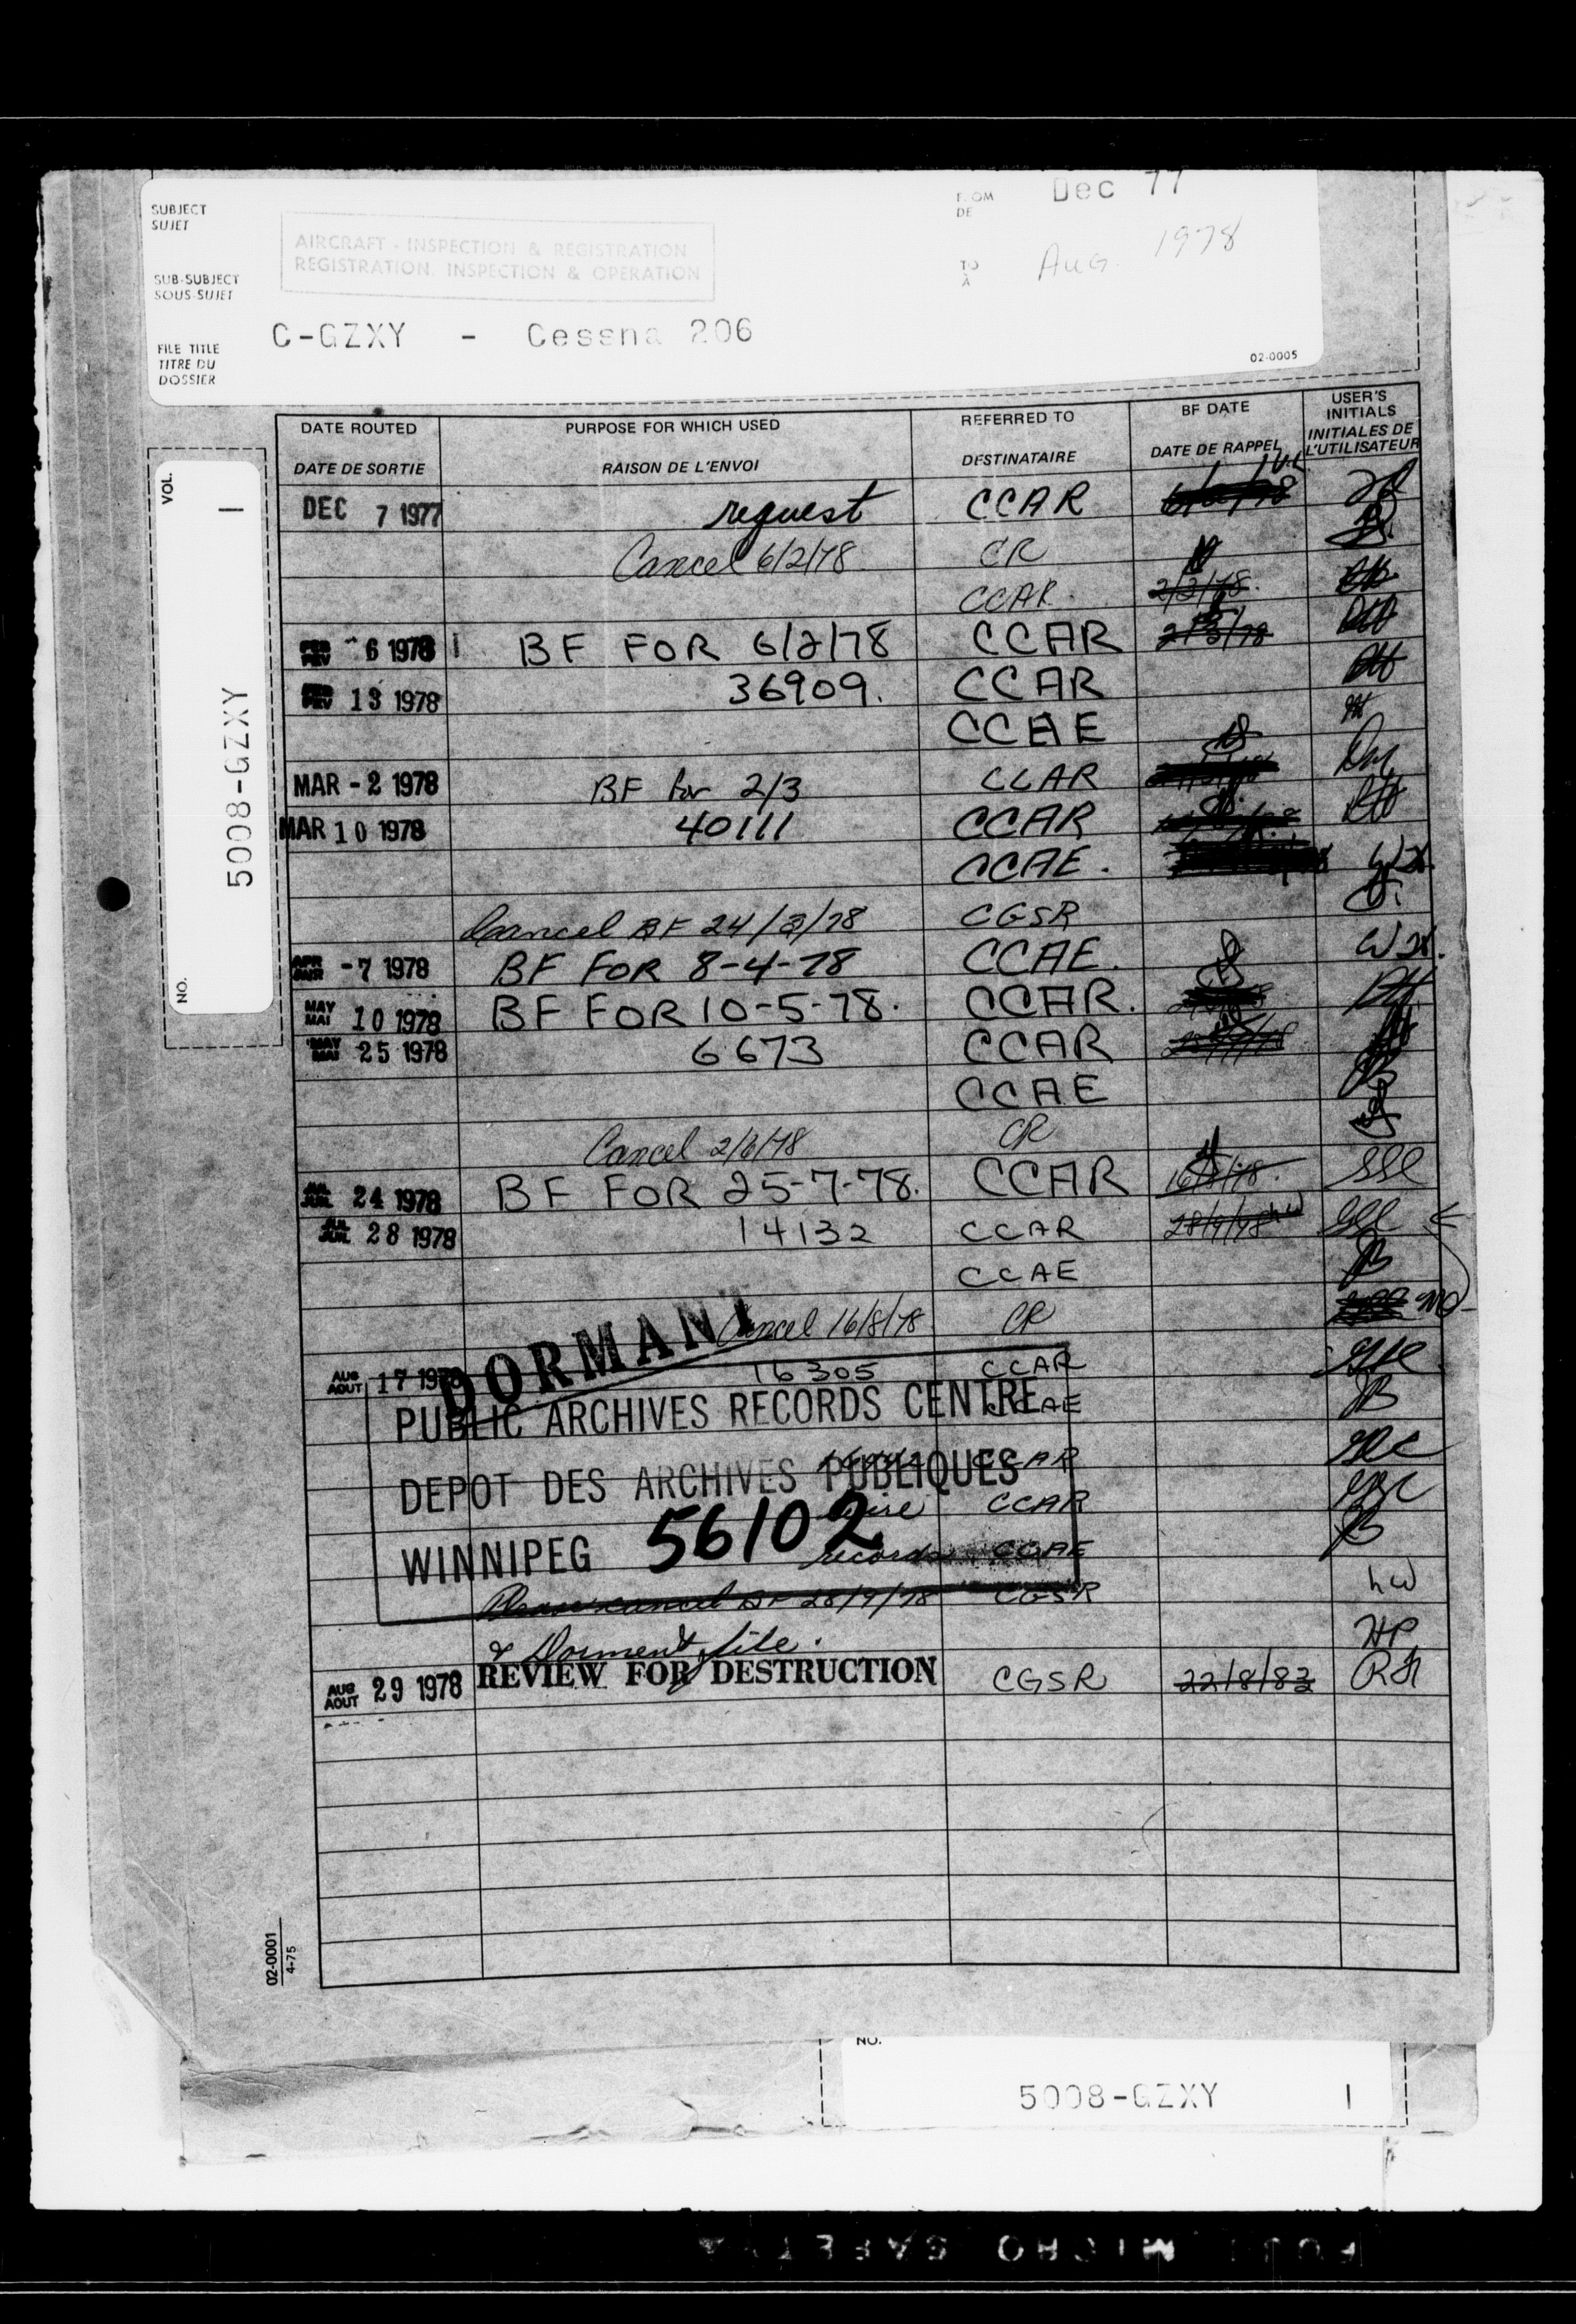 SUBJECT
SUJET
AIRCRAFT - INSPECTION & REGISTRATION
REGISTRATION, INSPECTION & OPERATION
SUB-SUBJECT
SOUS-SUJET
FROM
DE
Dec 77
TO
A
Aug. 1978
FILE TITLE
TITRE DU
DOSSIER
C-GZXY - Cessna 206
02-0005
VOL.
1
NO.
5008-GZXY
DATE ROUTED PURPOSE FOR WHICH USED REFERRED TO BF DATE USER'S INITIALS
DATE DE SORTIE RAISON DE L'ENVOI DESTINATAIRE DATE DE RAPPEL INITIALES DE L'UTILISATEUR
DEC 7 1977 request CCAR
Cancel 6/2/78 CR
CCAR. 2/2/78.
FEB FEV 6 1978 BF FOR 6/2/78 CCAR 2/3/78
FEB FEV 13 1978 36909. CCAR
CCAE
MAR - 2 1978 BF for 2/3 CCAR
MAR 10 1978 40111 CCAR
CCAE.
Cancel BF 24/3/78 CGSR
APR AVR -7 1978 BF FOR 8-4-78 CCAE.
MAY MAI 10 1978 BF FOR 10-5-78. CCAR.
MAY MAI 25 1978 6673 CCAR
CCAE
Cancel 2/6/78 CR
JUL JUIL 24 1978 BF FOR 25-7-78. CCAR 16/8/78.
JUL JUIL 28 1978 14132 CCAR 28/9/78 hw
CCAE
Cancel 16/8/78 CR
DORMANT
AUG AOUT 17 1978 16305 CCAR
CCAE
PUBLIC ARCHIVES RECORDS CENTRE
CCAR
DEPOT DES ARCHIVES PUBLIQUES
CCAR
WINNIPEG 56102
records CCAE
Please cancel BF 28/9/78 CGSR hw
& Dorment file. HP
AUG AOUT 29 1978 REVIEW FOR DESTRUCTION CGSR 22/8/83
02-0001
4-75
NO.
5008-GZXY 1